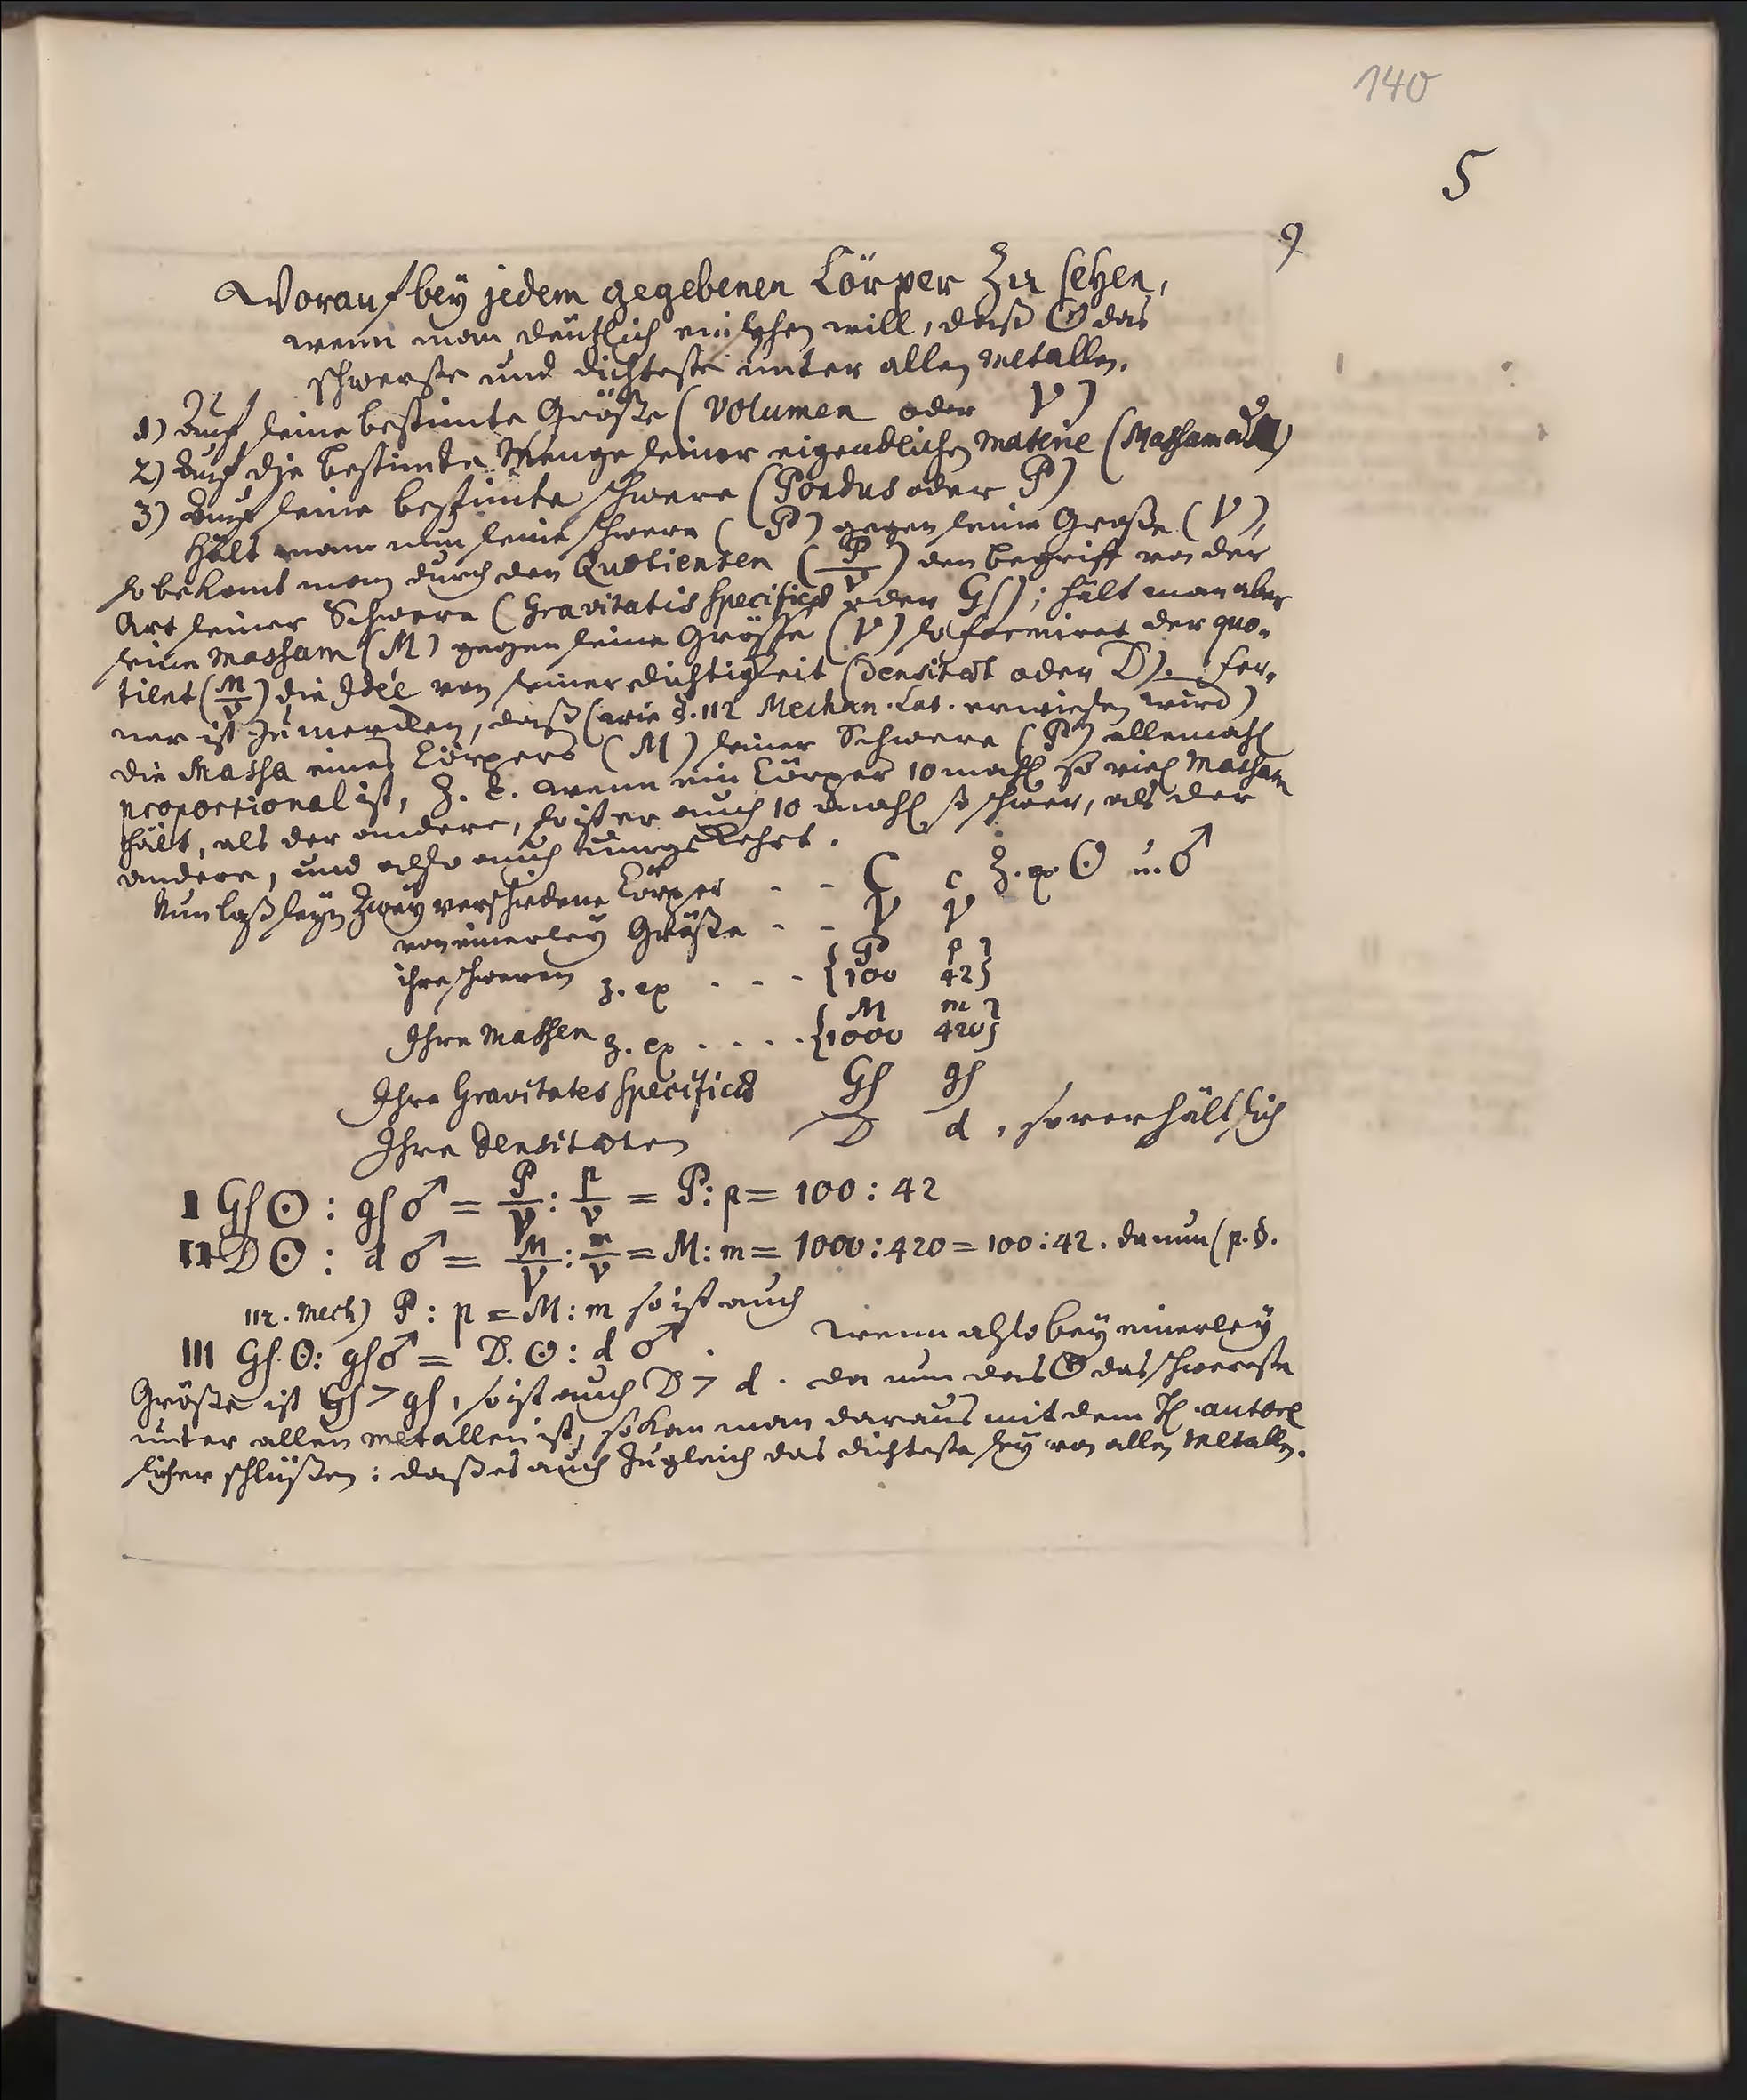 140
5
9
Worauf bey jedem gegebenen Cörper zu sehen,
wenn man deutlich einsehen will, daß ☉ das
schwerste und dichteste unter allen Metallen.
1) Auf seine bestimte Größe (Volumen oder V)
2) Auf die bestimte Menge seiner eigendlichen Materie (Massam od. M)
3) Auf seine bestimte schwere (Pondus oder P)
Hält man nun seine schwere (P) gegen seine Große (V),
so bekomt man durch den Quotienten (P/V) den begriff von der
Art seiner Schwere (Gravitatis specificæ oder Gs); hält man aber
seine Massam (M) gegen seine Größe (V) so formiret der quo-
tient (M/V) die Idée von seiner dichtigkeit (Densitæt oder D). Fer-
ner ist zu mercken, daß (wie §. 112 Mechan. Lat. erwiesen wird)
die Massa eines Cörpers (M) seiner Schwere (P) allemahl
proportional ist, Z. E. wenn ein Cörper 10 mahl so viel Massam
hält, als der andere, so ist er auch 10 mahl so schwer, als der
andere, und also auch umgekehrt.
Nun laß seyn zwey verschiedene Cörper - - C c Z. ex. ☉ u. ♂
von einerley Größe - - V V
ihre schweren z. ex - - - {P 100 p 42}
Ihre Massen z. ex - - - - {M 1000 m 420}
Ihre Gravitates specificæ Gs gs
Ihre Densitæten D d, so verhält sich
I Gs ☉ : gs ♂ = P/V : p/V = P : p = 100 : 42
II D ☉ : d ♂ = M/V : m/V = M : m = 1000 : 420 = 100 : 42. da nun (p. §.
112. Mech) P : p = M : m so ist auch
III Gs. ☉ : gs ♂ = D. ☉ : d ♂. Wenn also bey einerley
Größe ist Gs > gs, so ist auch D > d. da nun das ☉ das schwerste
unter allen Metallen ist, so kan man daraus mit dem H. autore
sicher schlüßen: daß es auch zugleich das dichteste sey von allen Metallen.